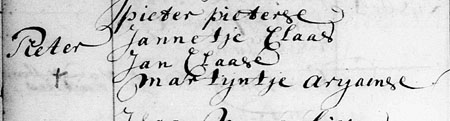 pieter pieterse
Pieter Jannetje Claas
Jan Claase
† Martijntje Aryaanse